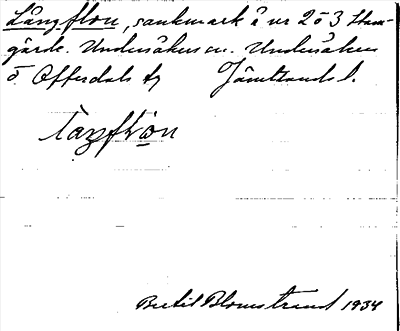 Långflon, sankmark å nr 2 o 3 Stam-
gärde. Undersåkers sn. Undersåkers
o. Offerdals tg Jämtlands l.
Bertil Blomstrand 1934